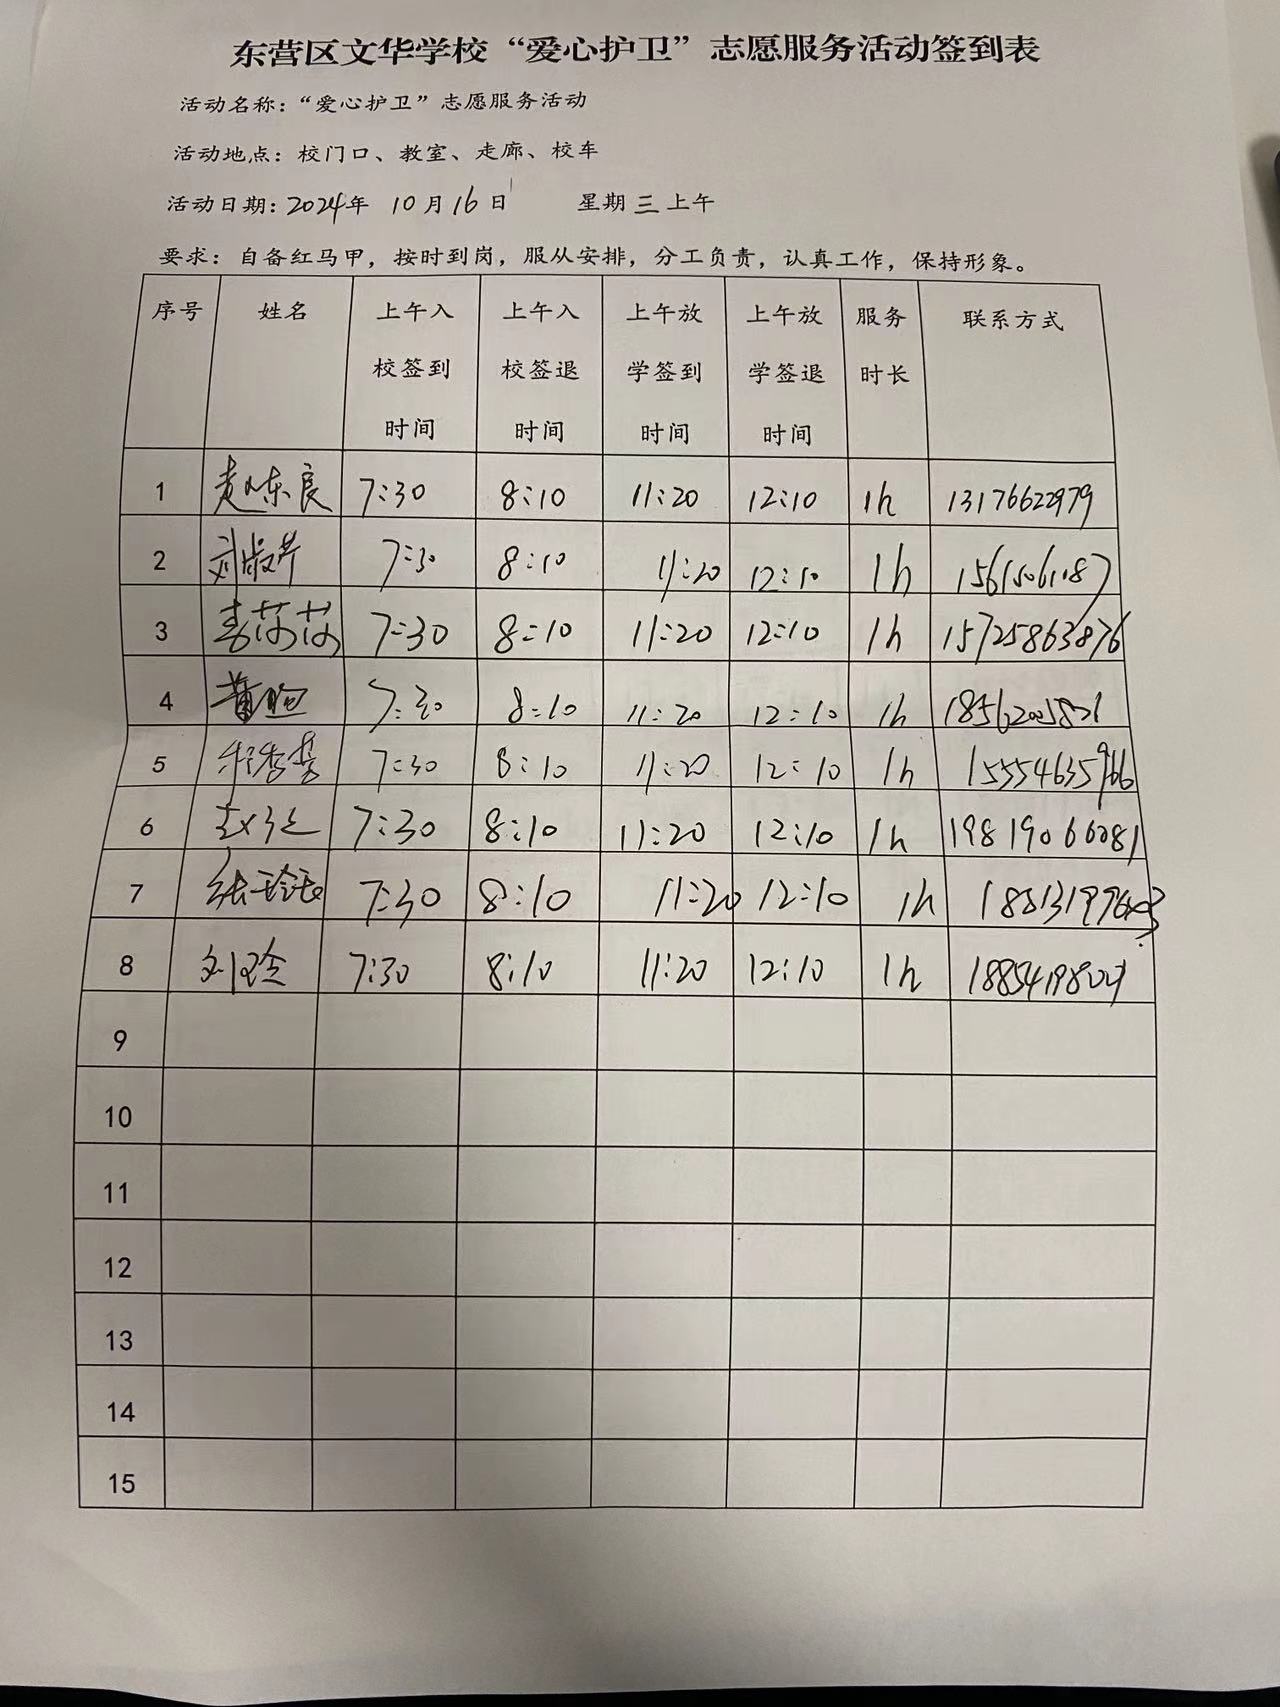 东营区文华学校“爱心护卫”志愿服务活动签到表
活动名称：“爱心护卫”志愿服务活动
活动地点：校门口、教室、走廊、校车
活动日期：2024年 10月16日 星期三上午
要求：自备红马甲，按时到岗，服从安排，分工负责，认真工作，保持形象。
序号 姓名 上午入校签到时间 上午入校签退时间 上午放学签到时间 上午放学签退时间 服务时长 联系方式
1 7:30 8:10 11:20 12:10 1h 13176622979
2 刘淑芹 7:30 8:10 11:20 12:10 1h 15615061087
3 李莎莎 7:30 8:10 11:20 12:10 1h 15725863876
4 7:30 8:10 11:20 12:10 1h
5 7:30 8:10 11:20 12:10 1h 15554635966
6 7:30 8:10 11:20 12:10 1h 19819066081
7 张玲玉 7:30 8:10 11:20 12:10 1h
8 刘玲 7:30 8:10 11:20 12:10 1h
9
10
11
12
13
14
15